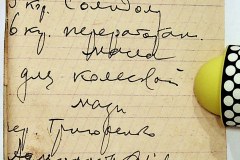 кгр. Солидол
6 кгр. переработан.
масла
для колесной
мази
Григоренко